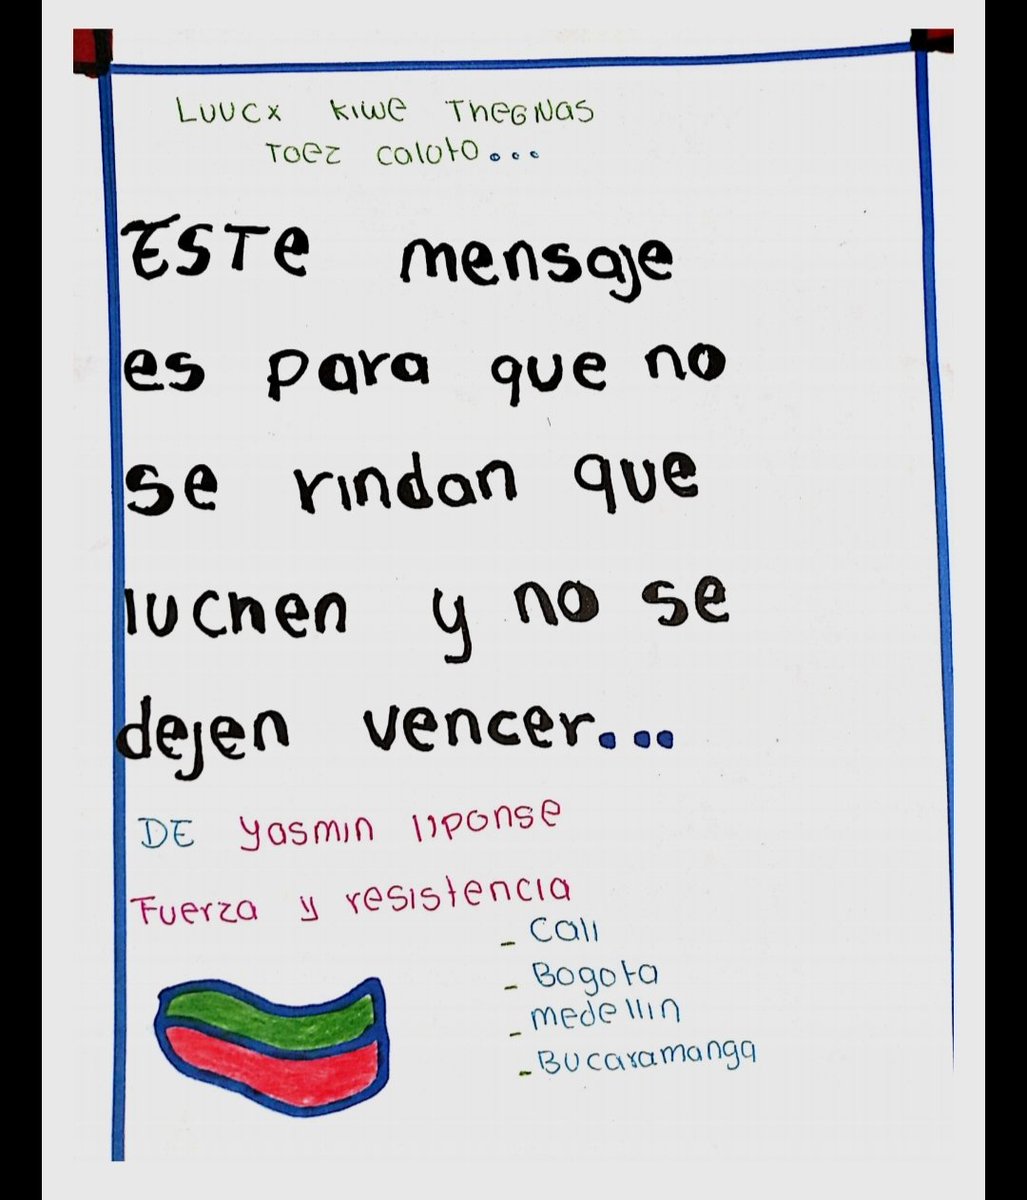 Luucx kiwe Thegnas
Toez caloto...
ESTe mensaje
es para que no
se rindan que
luchen y no se
dejen vencer...
DE Yasmin liponse
Fuerza y resistencia
- Cali
- Bogota
- medellin
- Bucaramanga